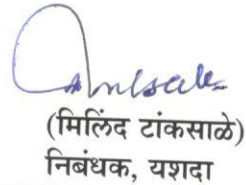 (मिलिंद टांकसाळे)
निबंधक, यशदा